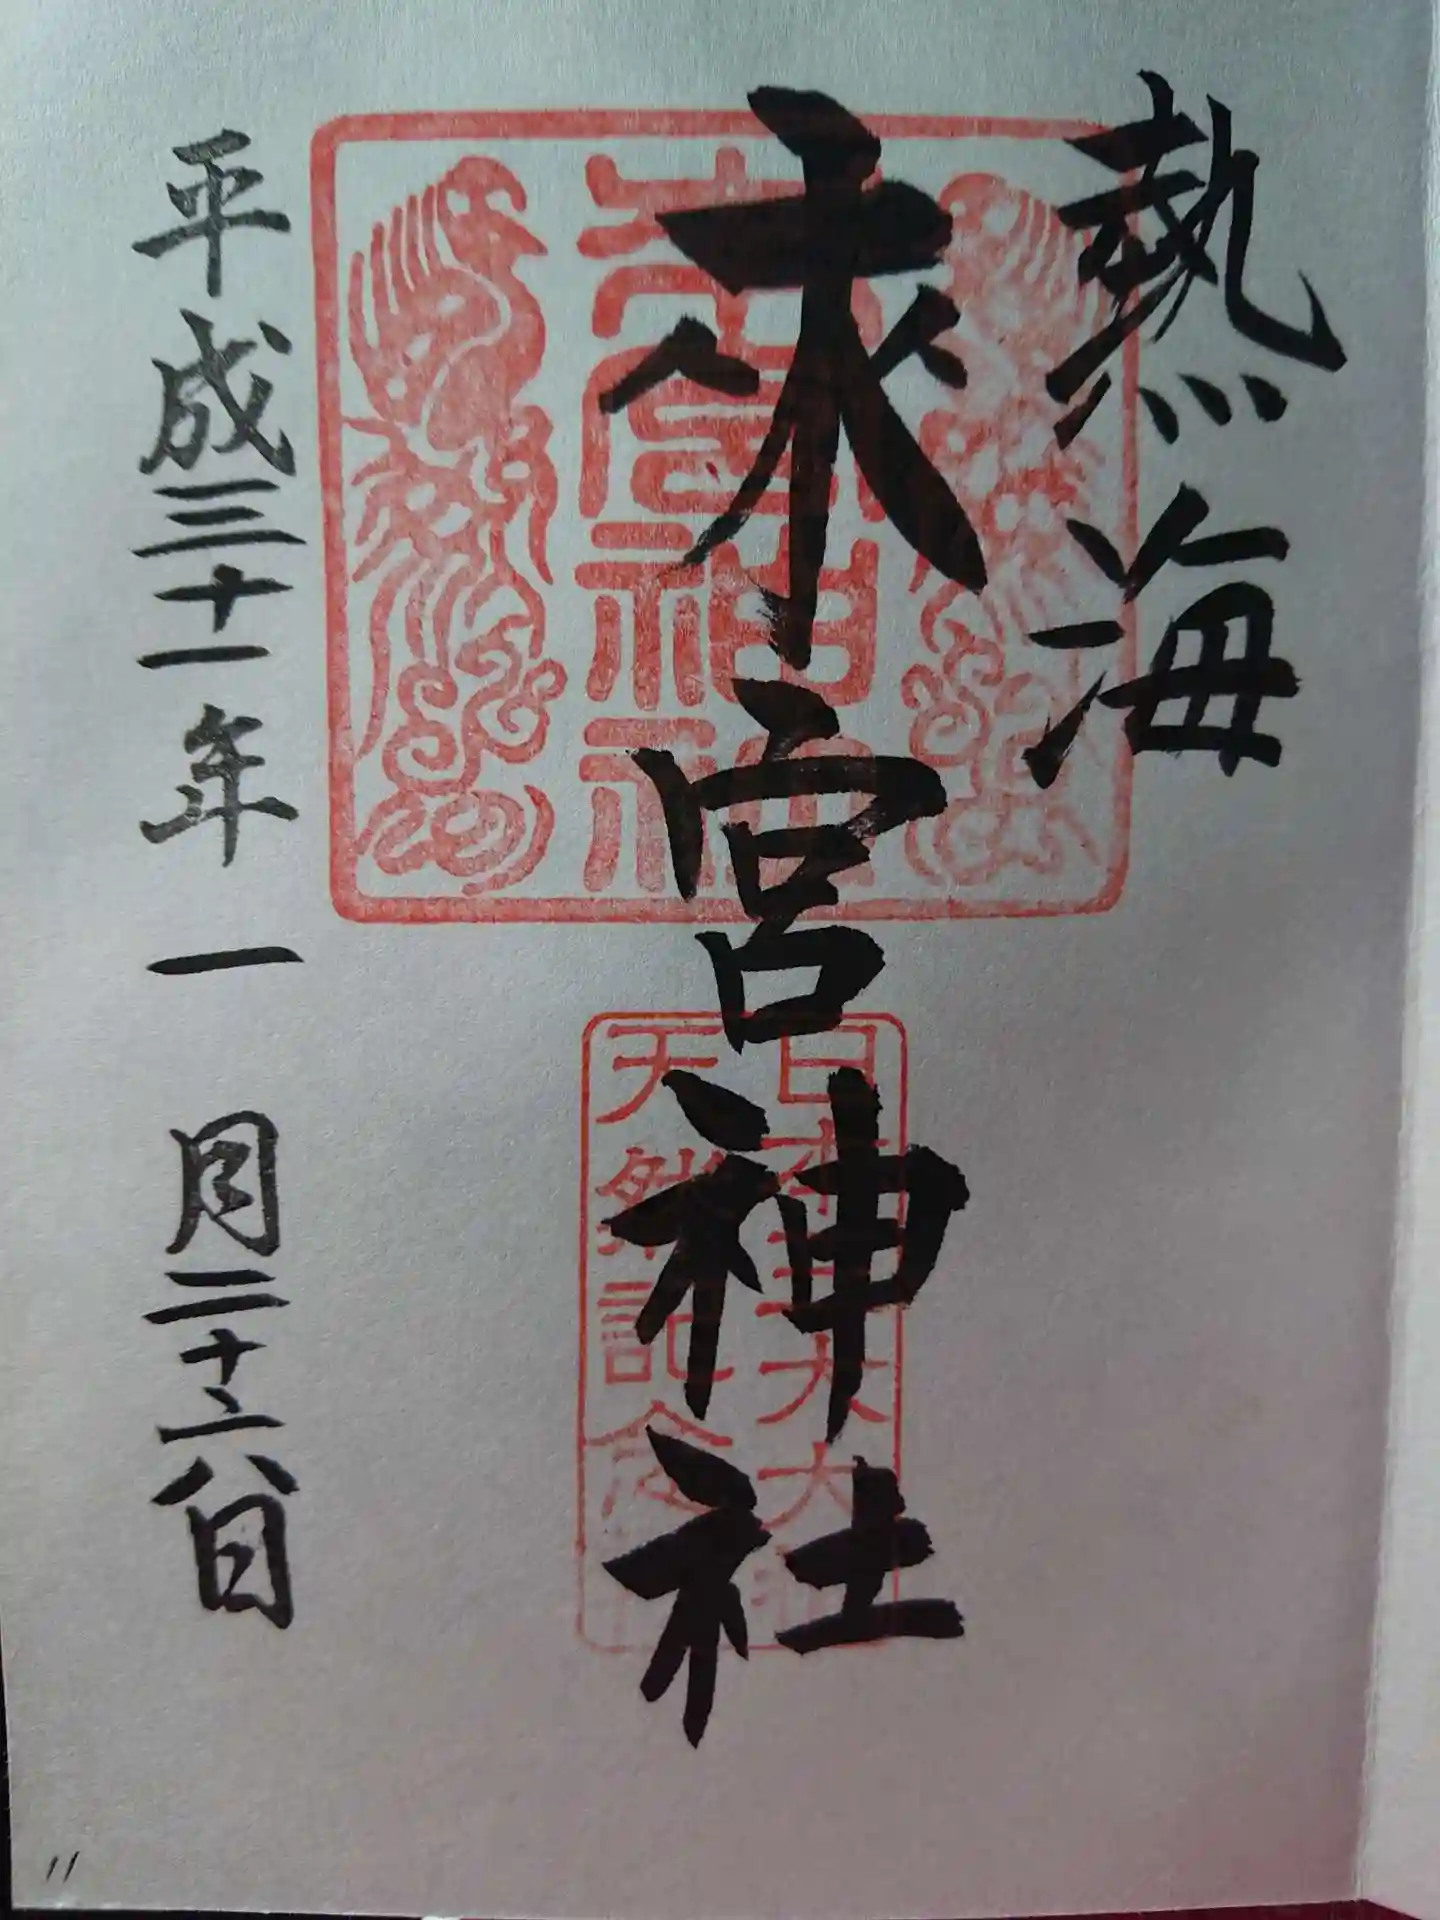 熱海
來宮神社
來宮神社
日本三大大
天然記念
平成三十一年一月二十六日
11